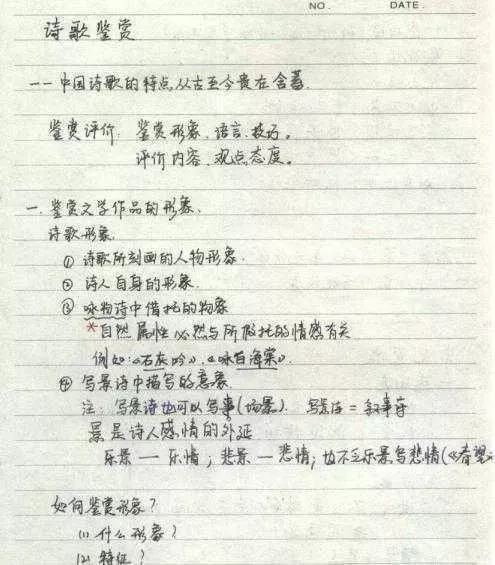 NO. DATE.
诗歌鉴赏
—— 中国诗歌的特点,从古至今贵在含蓄.
鉴赏评价: 鉴赏形象、语言、技巧。
评价内容、观点态度。
一. 鉴赏文学作品的形象.
诗歌形象.
① 诗歌所刻画的人物形象.
② 诗人自身的形象.
③ 咏物诗中借托的物象
*自然属性必然与所假托的情感有关
例如:《石灰吟》.《咏白海棠》.
④ 写景诗中描写的意象.
注: 写景诗也可以写事(场景). 写景诗=叙事诗
景是诗人感情的外延
乐景 — 乐情; 悲景 — 悲情; 也不乏乐景写悲情(《春望》
如何鉴赏形象?
(1) 什么形象?
(2) 特征?